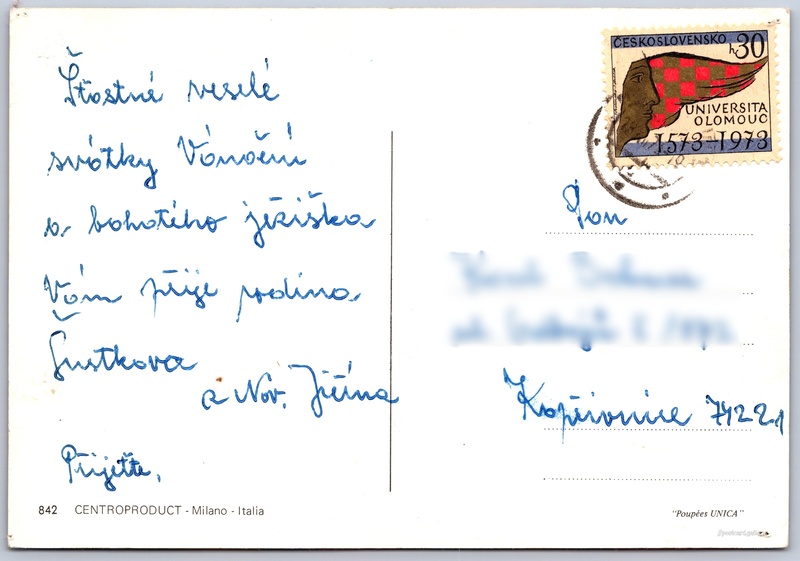 Šťastné veselé
svátky Vánoční
a bohatého ježíška
Vám přeje rodina
Šustkova
z Nov. Jičína
Přijeďte,
842 CENTROPRODUCT - Milano - Italia
ČESKOSLOVENSKO h 30
UNIVERSITA
OLOMOUC
1573-1973
Pan
Kopřivnice 74221
"Poupées UNICA"